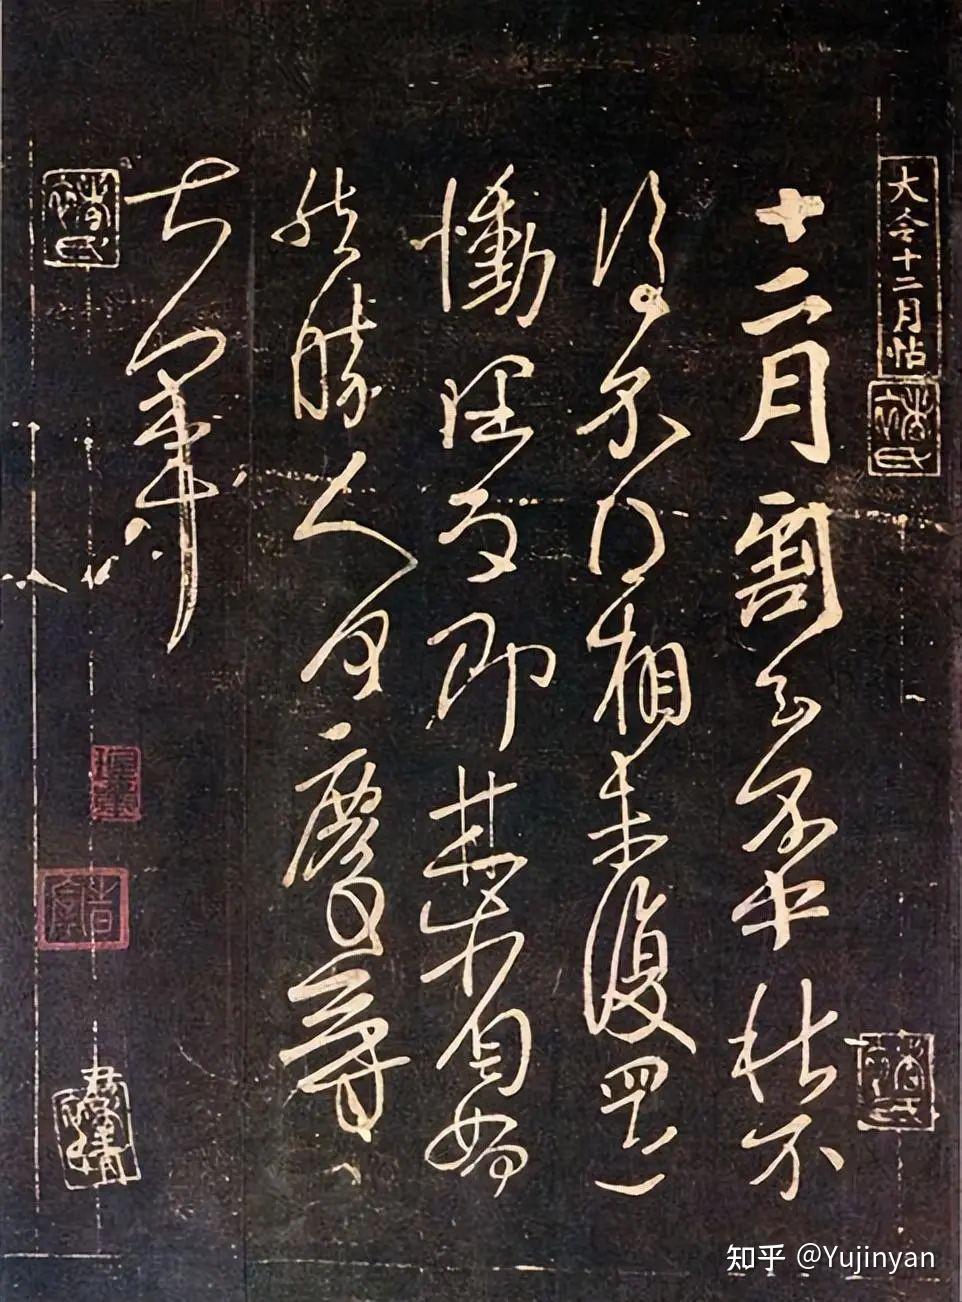 大令十二月帖
十二月割至不中秋不
復不得相未復還
慟理為即甚省如何
然勝人何慶等
大軍
知乎 @Yujinyan